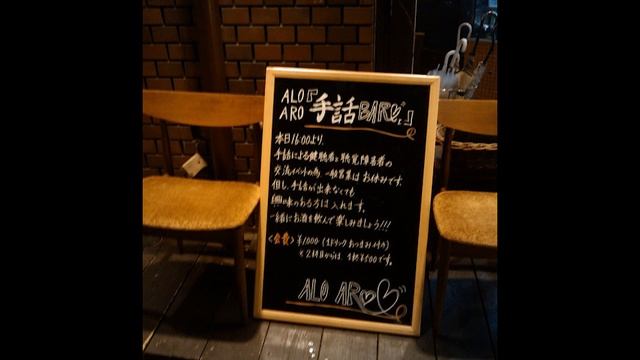 ALO『手話BAR』
ARO
本日16:00より、
手話による健聴者と聴覚障害者の
交流イベントの為 一般営業は お休みです。
但し、手話が出来なくても
興味のある方は入れます。
一緒にお酒を飲んで楽しみましょう!!!
<会費> ¥1000 (1ドリンク おつまみ付き)
と2杯目からは 1杯¥500です。
ALO ARO